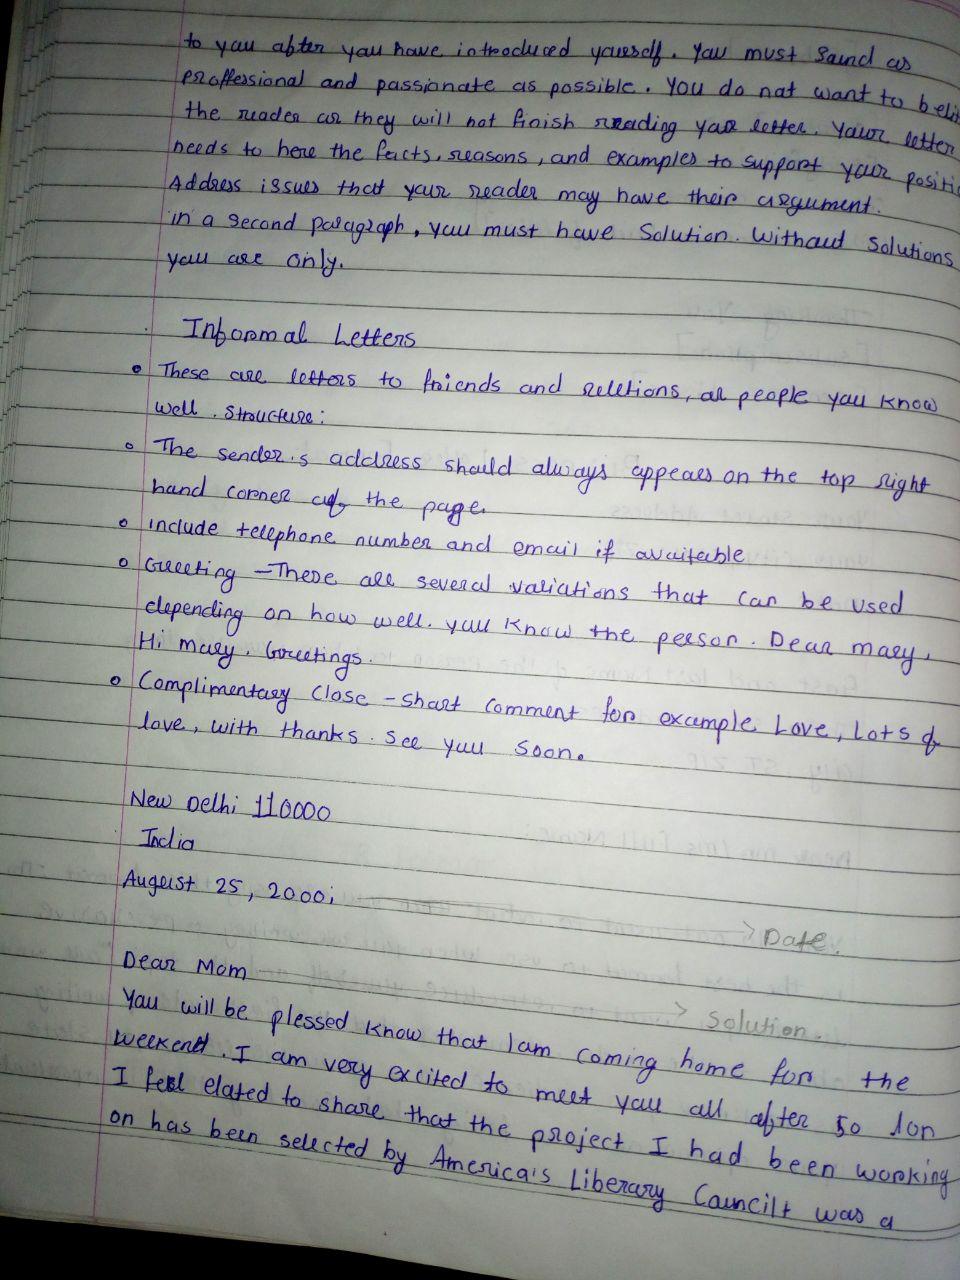 to you after you have introduced yourself. You must Saund as
proffessional and passionate as possible. You do nat want to beli
the reader as they will not finish reading your letter. Your letter
needs to here the facts, reasons, and examples to support your positi
Address issues that your reader may have their argument.
in a second paragraph, you must have Solution. Withaut Solutions
you are only.
Informal Letters
• These are letters to friends and reletions, all people you know
well. Structure:
• The sender.s address should always appears on the top right
hand corner of the page.
• include telephone number and email if available
• Greeting – These are several variations that can be used
depending on how well. you know the person. Dear mary,
Hi mary. Greetings.
• Complimentary close – short comment for example Love, Lots of
love, with thanks. See you soon.
New Delhi 110000
India
August 25, 2000;
> Date.
Dear Mom
> Solution.
You will be plessed know that I am coming home for the
weekend. I am very excited to meet you all after so lon
I feel elated to share that the project I had been working
on has been selected by America's Liberary Councilt was a